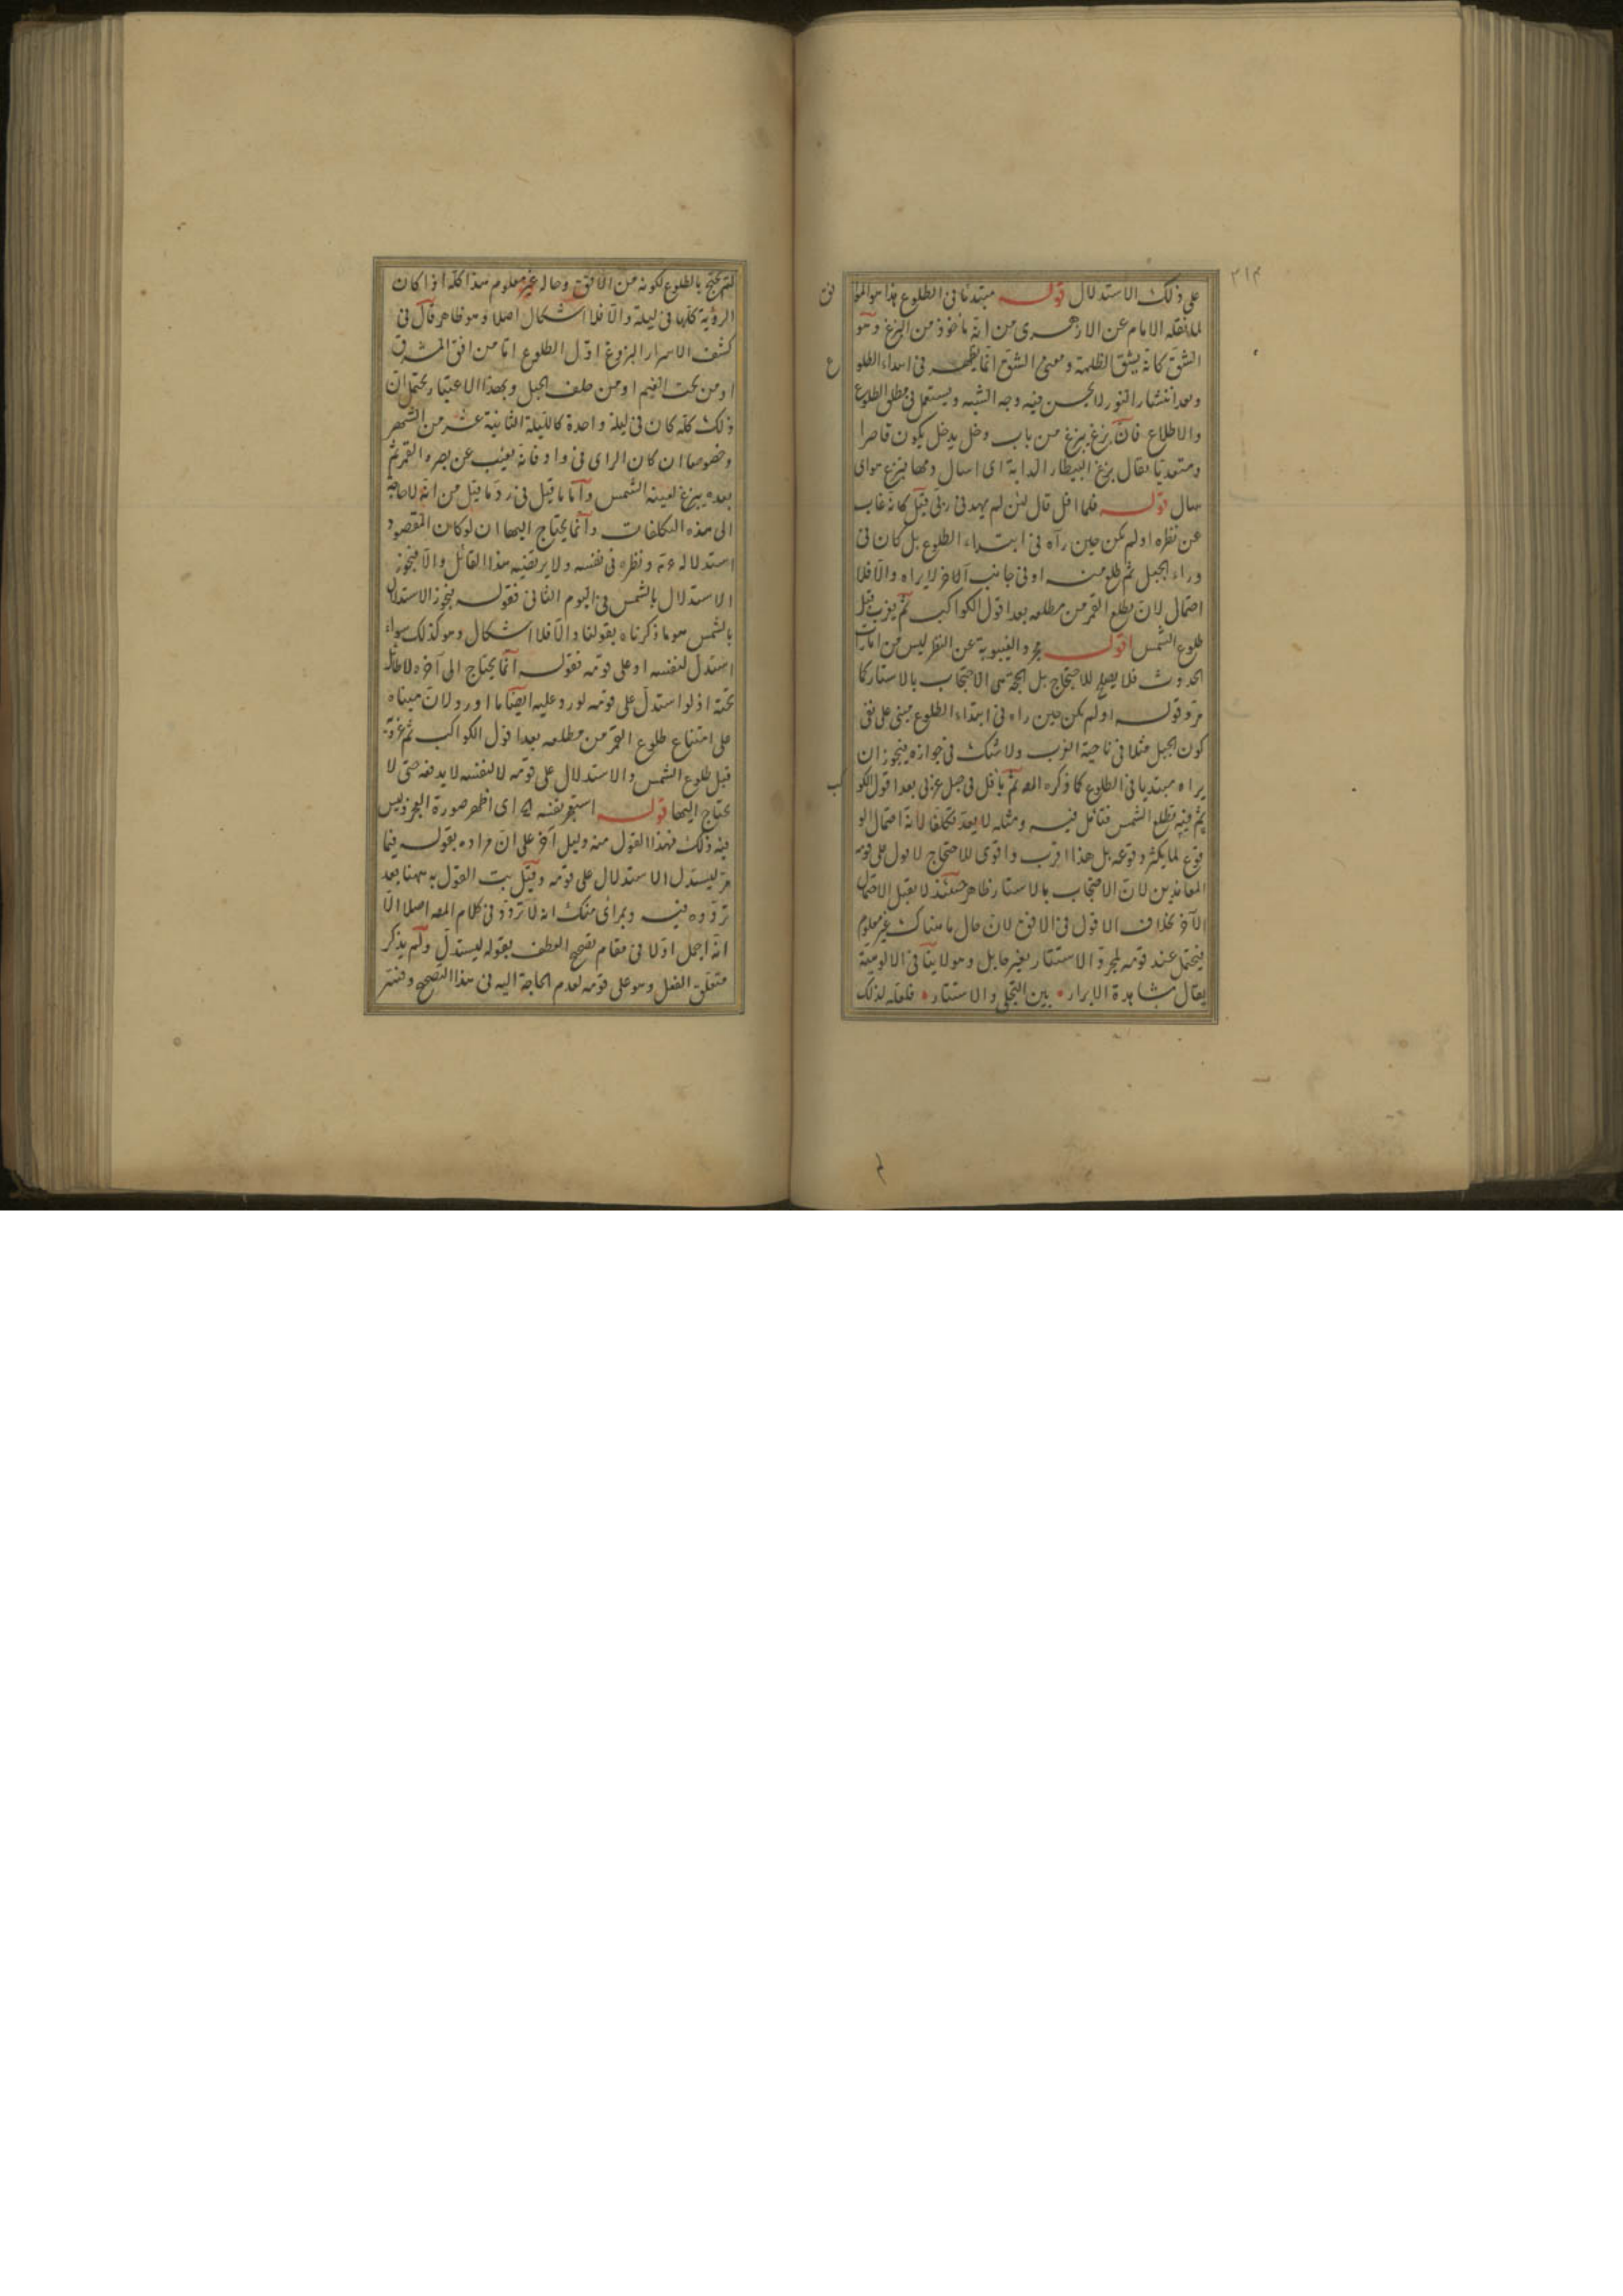 ٢١٣
على ذلك الاستدلال قوله مبتدئا فى الطلوع هذا هو الموا
فق
لما نقله الامام عن الازهرى من انه مأخوذ من البزغ وهو
الشق كانه يشق الظلمة ومعنى الشق انما يظهر فى ابتداء الطلو
ع
وبعد انتشار النور لا يحسن فيه وجه الشبه ويستعمل فى مطلق الطلوع
والاطلاع فان بزغ يبزغ من باب دخل يدخل يكون قاصرا
ومتعديا يقال بزغ البيطار الدابة اى اسال دمها فبزغ هو اى
سال قوله فلما افل قال لئن لم يهدنى ربى قيل كانه غاب
عن نظره او لم يكن حين رآه فى ابتداء الطلوع بل كان فى
وراء الجبل ثم طلع منه او فى جانب آخر لا يراه والا فلا
احتمال لان يطلع القمر من مطلعه بعد افول الكواكب ثم يغرب قبل
طلوع الشمس اقول مجرد الغيبوبة عن النظر ليس من امارات
الحدوث فلا يصلح للاحتجاج بل الحجة هى الاحتجاب بالاستار كما
مر وقوله او لم يكن حين راه فى ابتداء الطلوع مبنى على نفى
كون الجبل مثلا فى ناحية الغرب ولا شك فى جوازه فيجوز ان
يراه مبتديا فى الطلوع كما ذكره المصـ ثم يأفل فى جبل غربى بعد افول الكو
كب
ثم فيه تطلع الشمس فتأمل فيه ومثله لا يعد تكلفا لانه احتمال الو
قوع لما يكثر وقوعه بل هذا اقرب واقوى للاحتجاج لافول على قومه
المعاندين لان الاحتجاب بالاستار ظاهر حينئذ لا يقبل الاحتمال
الآخر بخلاف الافول فى الافق لان حال ما هناك غير معلوم
فيحتمل عند قومه لمجرد الاستتار بغير حايل وهو لا ينافى الالوهية
يقال مشاهدة الابرار • بين التجلى والاستتار • فلعله لذلك
لم يحتج بالطلوع لكونه من الافق وحاله غير معلوم هذا كله اذا كان
الرؤية كلها فى ليلة والا فلا اشكال اصلا وهو ظاهر قال فى
كشف الاسرار البزوغ اول الطلوع اما من افق المشرق
او من تحت الغيم او من خلف الجبل وبهذا الاعتبار يحتمل ان
ذلك كله كان فى ليلة واحدة كالليلة الثانية عشر من الشهر
وخصوصا ان كان الراى فى واد فانه يغيب عن بصره القمر ثم
بعده يبزغ لعينه الشمس واما ما قيل فى رد ما قيل من انه لا حاجة
الى هذه التكلفات وانما يحتاج اليها ان لو كان المقصود
استدلاله عم ونظره فى نفسه ولا يرتضيه هذا القائل والا فيجوز
الاستدلال بالشمس فى اليوم الثانى فقوله فيجوز الاستدلال
بالشمس هو ما ذكرناه بقولنا والا فلا اشكال وهو كذلك سواء
استدل لنفسه او على قومه فقوله انما يحتاج الى آخره لا طائل
تحته اذ لو استدل على قومه لورد عليه ايضا ما اورد لان مبناه
على امتناع طلوع القمر من مطلعه بعد افول الكواكب ثم غروبه
قبل طلوع الشمس والاستدلال على قومه لا لنفسه لا يدفعه حتى لا
يحتاج اليها قوله استعجز نفسه اى اظهر صورة العجز وليس
فيه ذلك فهذا القول منه دليل آخر على ان مراده بقوله فيما
مر ليستدل الاستدلال على قومه وقيل بت القول به ههنا بعد
تردده فيه وبمرأى منك انه لا تردد فى كلام المصـ اصلا الا
انه اجمل اولا فى مقام تصحيح العطف بقوله ليستدل ولم يذكر
متعلق الفعل وهو على قومه لعدم الحاجة اليه فى هذا التصحيح وفسر